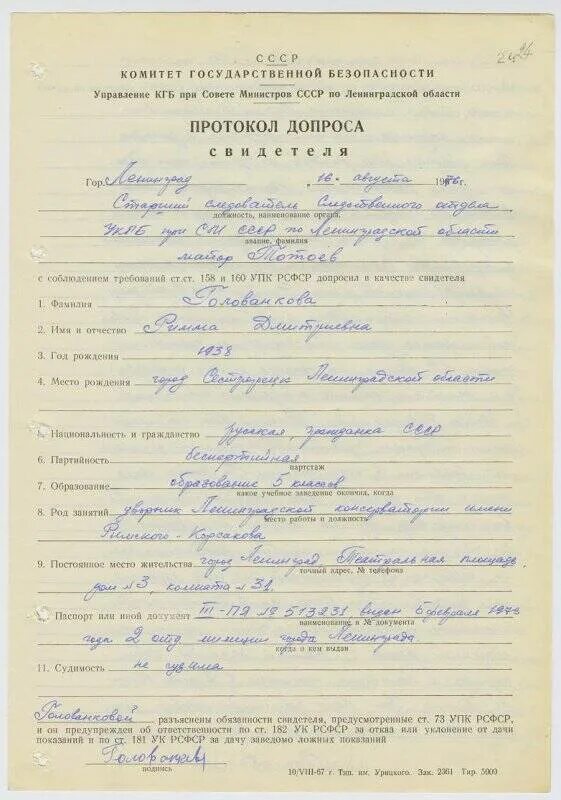 СССР
КОМИТЕТ ГОСУДАРСТВЕННОЙ БЕЗОПАСНОСТИ
Управление КГБ при Совете Министров СССР по Ленинградской области
ПРОТОКОЛ ДОПРОСА
свидетеля
Гор. Ленинград „16“ августа 1976 г.
Старший следователь Следственного отдела
должность, наименование органа,
УКГБ при СМ СССР по Ленинградской области
звание, фамилия
майор
с соблюдением требований ст.ст. 158 и 160 УПК РСФСР допросил в качестве свидетеля
1. Фамилия Голованкова
2. Имя и отчество Римма Дмитриевна
3. Год рождения 1938
4. Место рождения город Сестрорецк Ленинградской области
5. Национальность и гражданство русская, гражданка СССР
6. Партийность беспартийная
партстаж
7. Образование образование 5 классов
какое учебное заведение окончил, когда
8. Род занятий дворник Ленинградской консерватории имени
место работы и должность
Римского-Корсакова
9. Постоянное место жительства город Ленинград Театральная площадь
точный адрес, № телефона
дом №3, комната №31.
10. Паспорт или иной документ III-ПЯ № 513231 выдан февраля
наименование и № документа
года 2 отд милиции города Ленинграда.
когда и кем выдан
11. Судимость не судима
Голованковой разъяснены обязанности свидетеля, предусмотренные ст. 73 УПК РСФСР,
и он предупрежден об ответственности по ст. 182 УК РСФСР за отказ или уклонение от дачи
показаний и по ст. 181 УК РСФСР за дачу заведомо ложных показаний
подпись
10/VIII-67 г. Тип. им. Урицкого. Зак. 2361 Тир. 5000